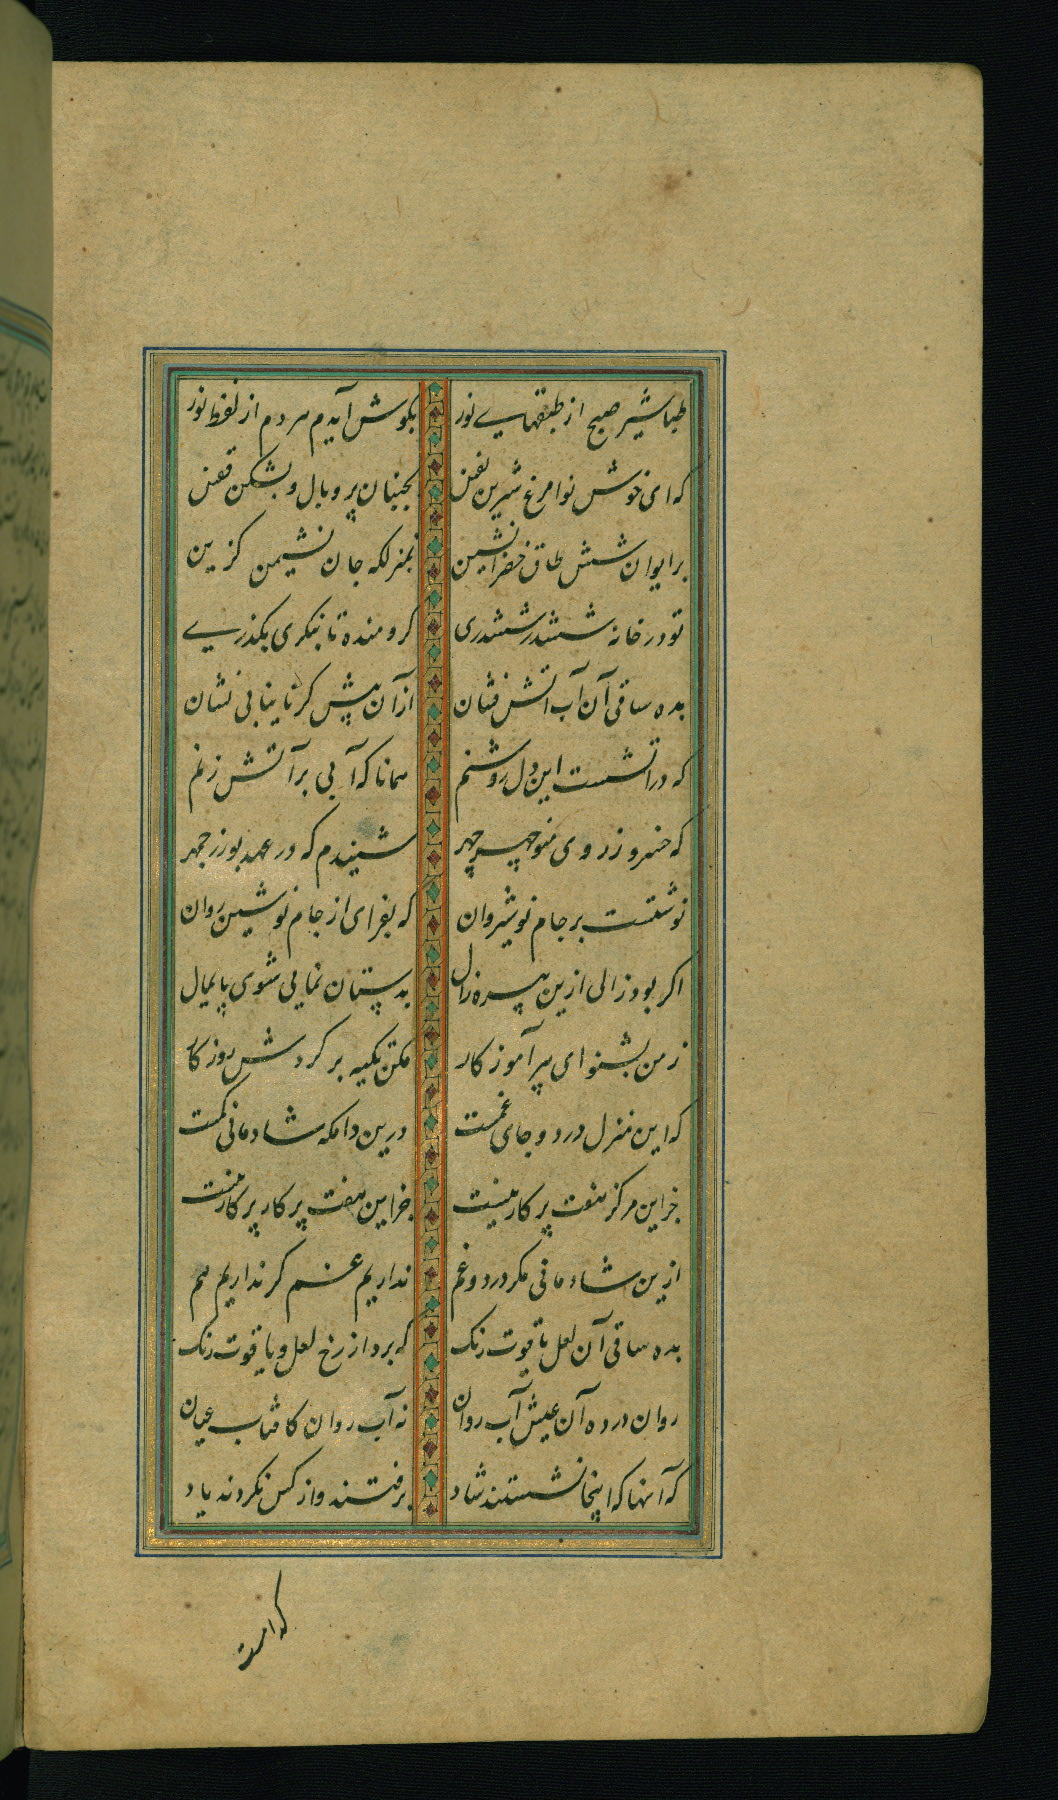 طباشیر صبح از طبقهایے نور بکوش آیدم هر دم از لفظ نور
که ای خوش نوا مرغ شیرین نفس بجنبان پر و بال و بشکن قفس
بر ایوان شش طاق خضرا نشین بمنزلکه جان نشیمن کزین
تو در خانه ششدر ششدری کرو منده تا ننکری بکذریے
بده ساقی آن آب اتش فشان از آن پیش کز ما نیابی نشان
که در اتشست این دل روشنم همانا که آبی بر آتش زنم
که خسرو ز روی منوچهر چهر شنیدم که در عهد بوزرجمهر
نوشتست بر جام نوشیروان که بفزای از جام نوشین روان
اکر بود زالی ازین پیره زال بدستان نمایی شوی پایمال
ز من بشنو ای پیر آموز کار مکن تکیه بر کردش روز کار
که این منزل درد و جای غمست درین دامکه شادمانی کمست
جز این مرکز هفت پرکار نیست جز این هفت پرکار پرکار نیست
ازین شادمانی مکر درد و غم نداریم غم کر نداریم هم
بده ساقی آن لعل یاقوت رنک که برد از رخ لعل و یاقوت رنک
روان در ده آن عیش آب روان نه آب روان کافتاب عیان
که آنها که اینجا نشستند شاد برفتند و از کس نکردند یاد